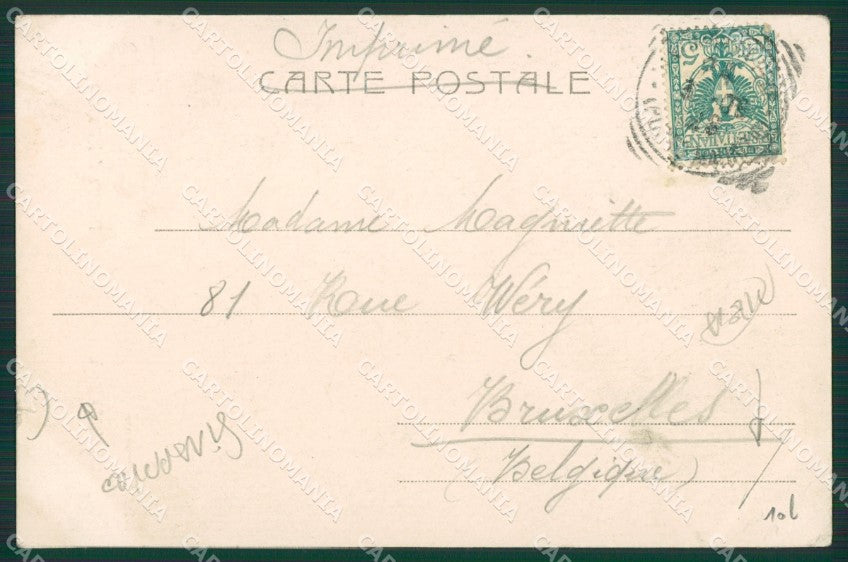 Imprimé.
CARTE POSTALE
5
Madame Magniette
81 Rue Wéry
Bruxelles
(Belgique)
10L
CARTOLINOMANIA